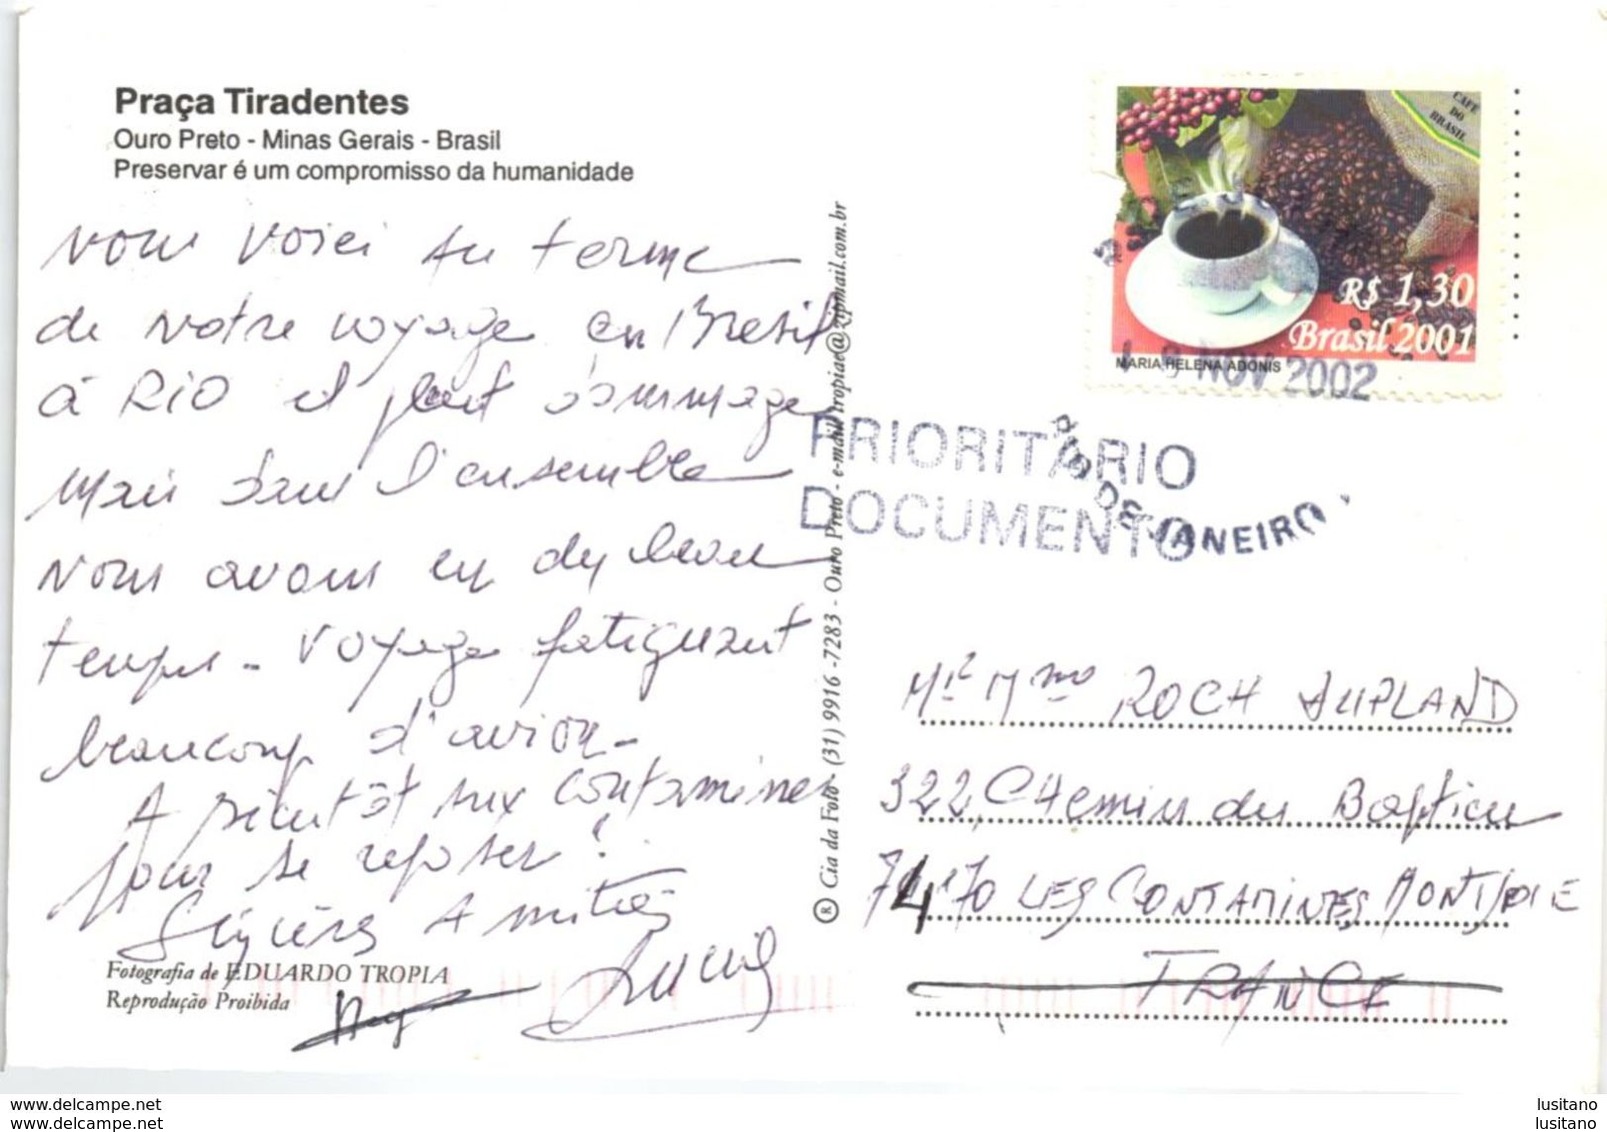 Praça Tiradentes
Ouro Preto - Minas Gerais - Brasil
Preservar é um compromisso da humanidade
Nous voici au terme
de notre voyage en Bresil
à RIO il pleut dommage
Mais dans l'ensemble
nous avons eu du beau
temps - voyage fatiguant
beaucoup d'avion -
A bientôt aux Contamines
pour se reposer !
Sincères Amitiés
Fotografia de EDUARDO TROPIA
Reprodução Proibida
® Cia da Foto - (31) 9916 -7283 - Ouro Preto - e-mail: tropiae@zipmail.com.br
CAFÉ
DO
BRASIL
R$ 1,30
Brasil 2001
MARIA HELENA ADONIS
NOV 2002
PRIORITÁRIO
DOCUMENTO
RIO DE JANEIRO
Mr Mme ROCH
322, Chemin du
74170 LES CONTAMINES MONTJOIE
FRANCE
www.delcampe.net
www.delcampe.net
lusitano
lusitano